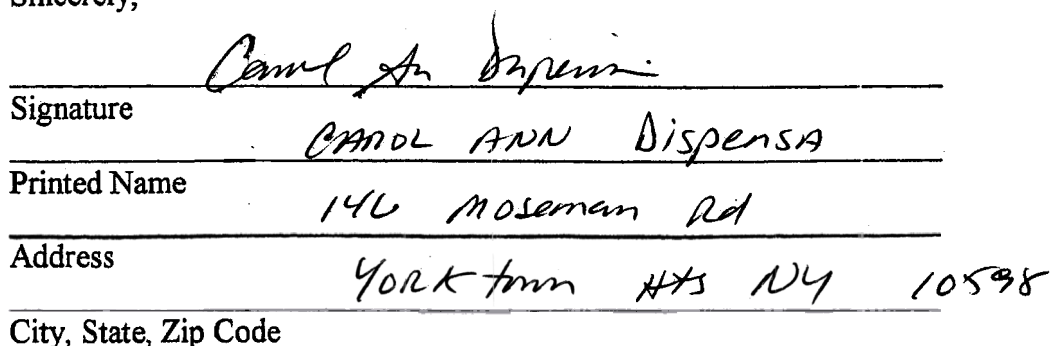 Sincerely,
Carol An Dispensa
Signature
CAROL ANN DispensA
Printed Name
146 Moseman Rd
Address
YORKtown Hts NY 10598
City, State, Zip Code